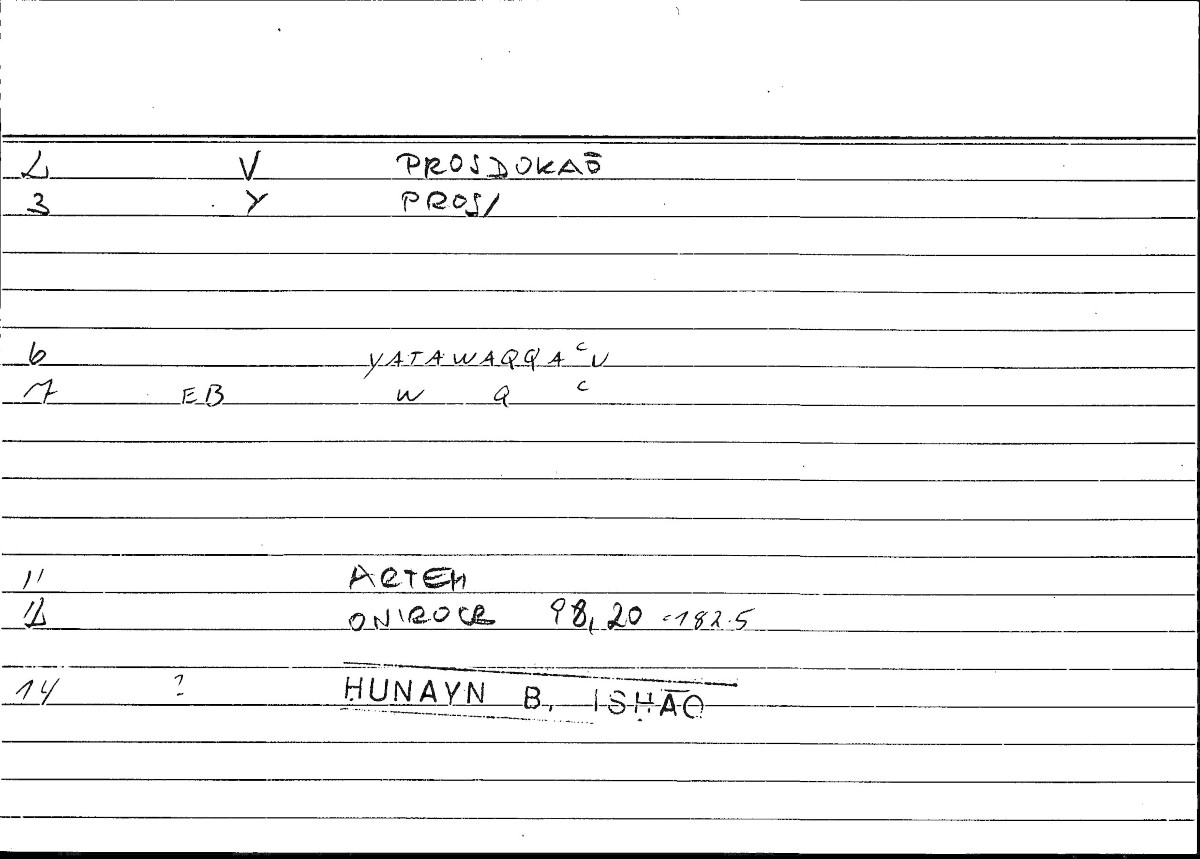 2 V PROSDOKAŌ
3 Y PROS/
6 YATAWAQQAᶜU
7 EB W Q ᶜ
11 ARTEM
12 ONIROCR 98,20 =182.5
14 ? ḤUNAYN B. ISḤĀQ